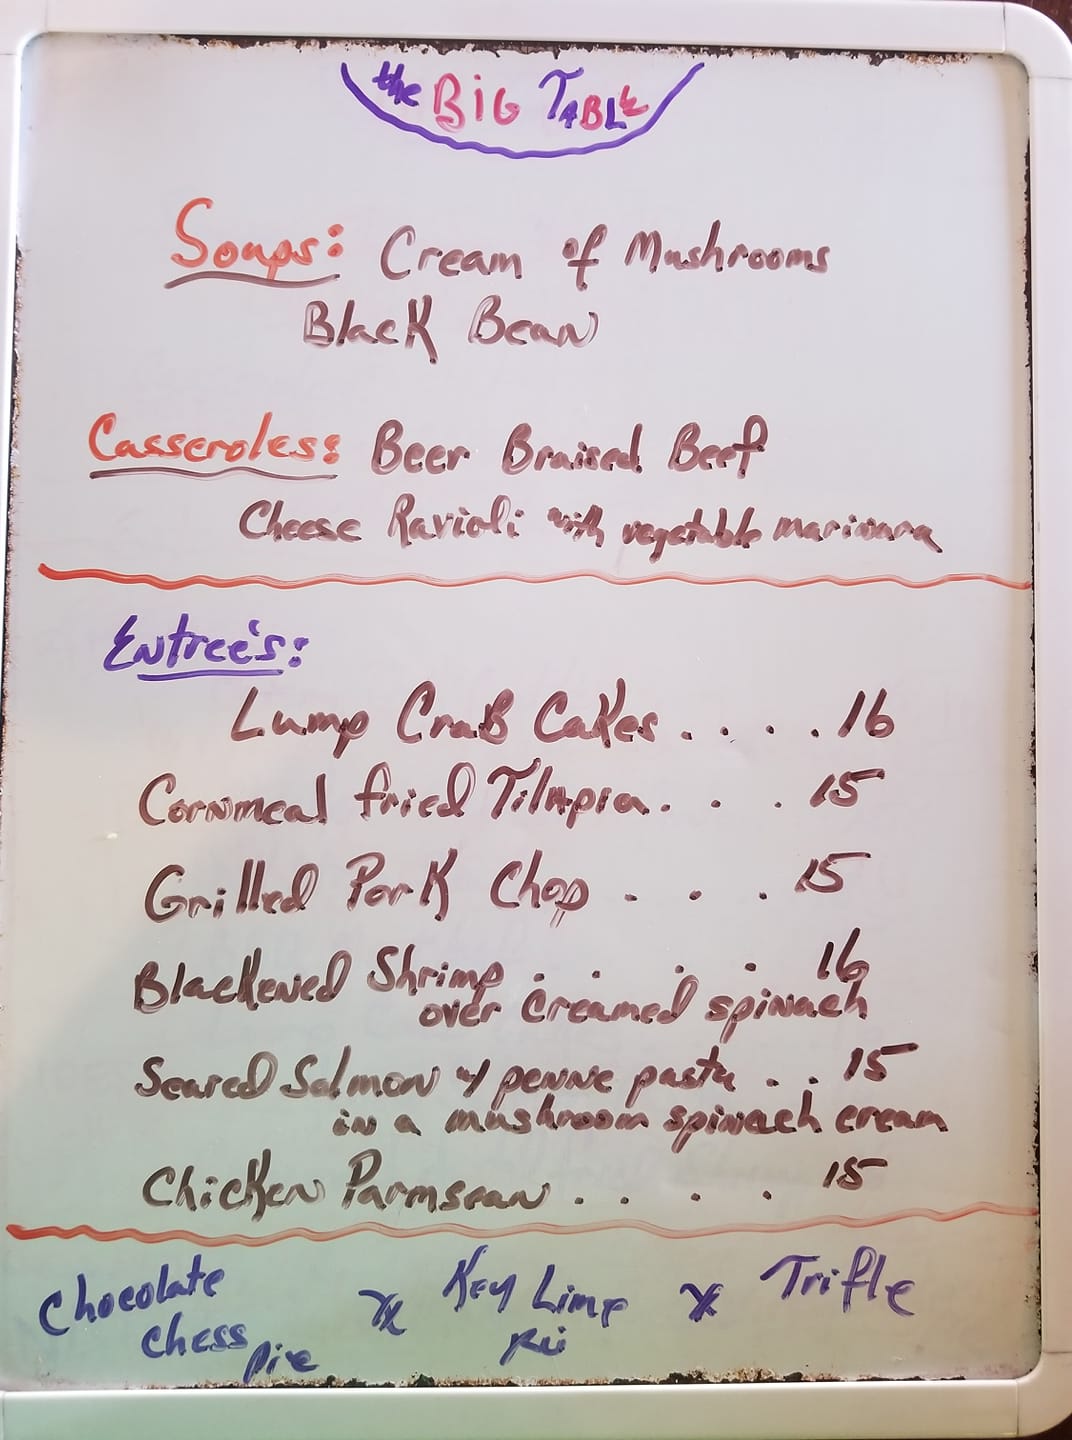 the BIG TABLE
Soups: Cream of Mushrooms
Black Bean
Casseroles: Beer Braised Beef
Cheese Ravioli with vegetable marinara
Entree's:
Lump Crab Cakes . . . . . 16
Cornmeal fried Tilapia. . . 15
Grilled Pork Chop . . . 15
Blackened Shrimp . . . . 16
over creamed spinach
Seared Salmon w/ penne pasta . . . 15
in a mushroom spinach cream
Chicken Parmsean . . . . 15
Chocolate x Key Lime x Trifle
chess pie